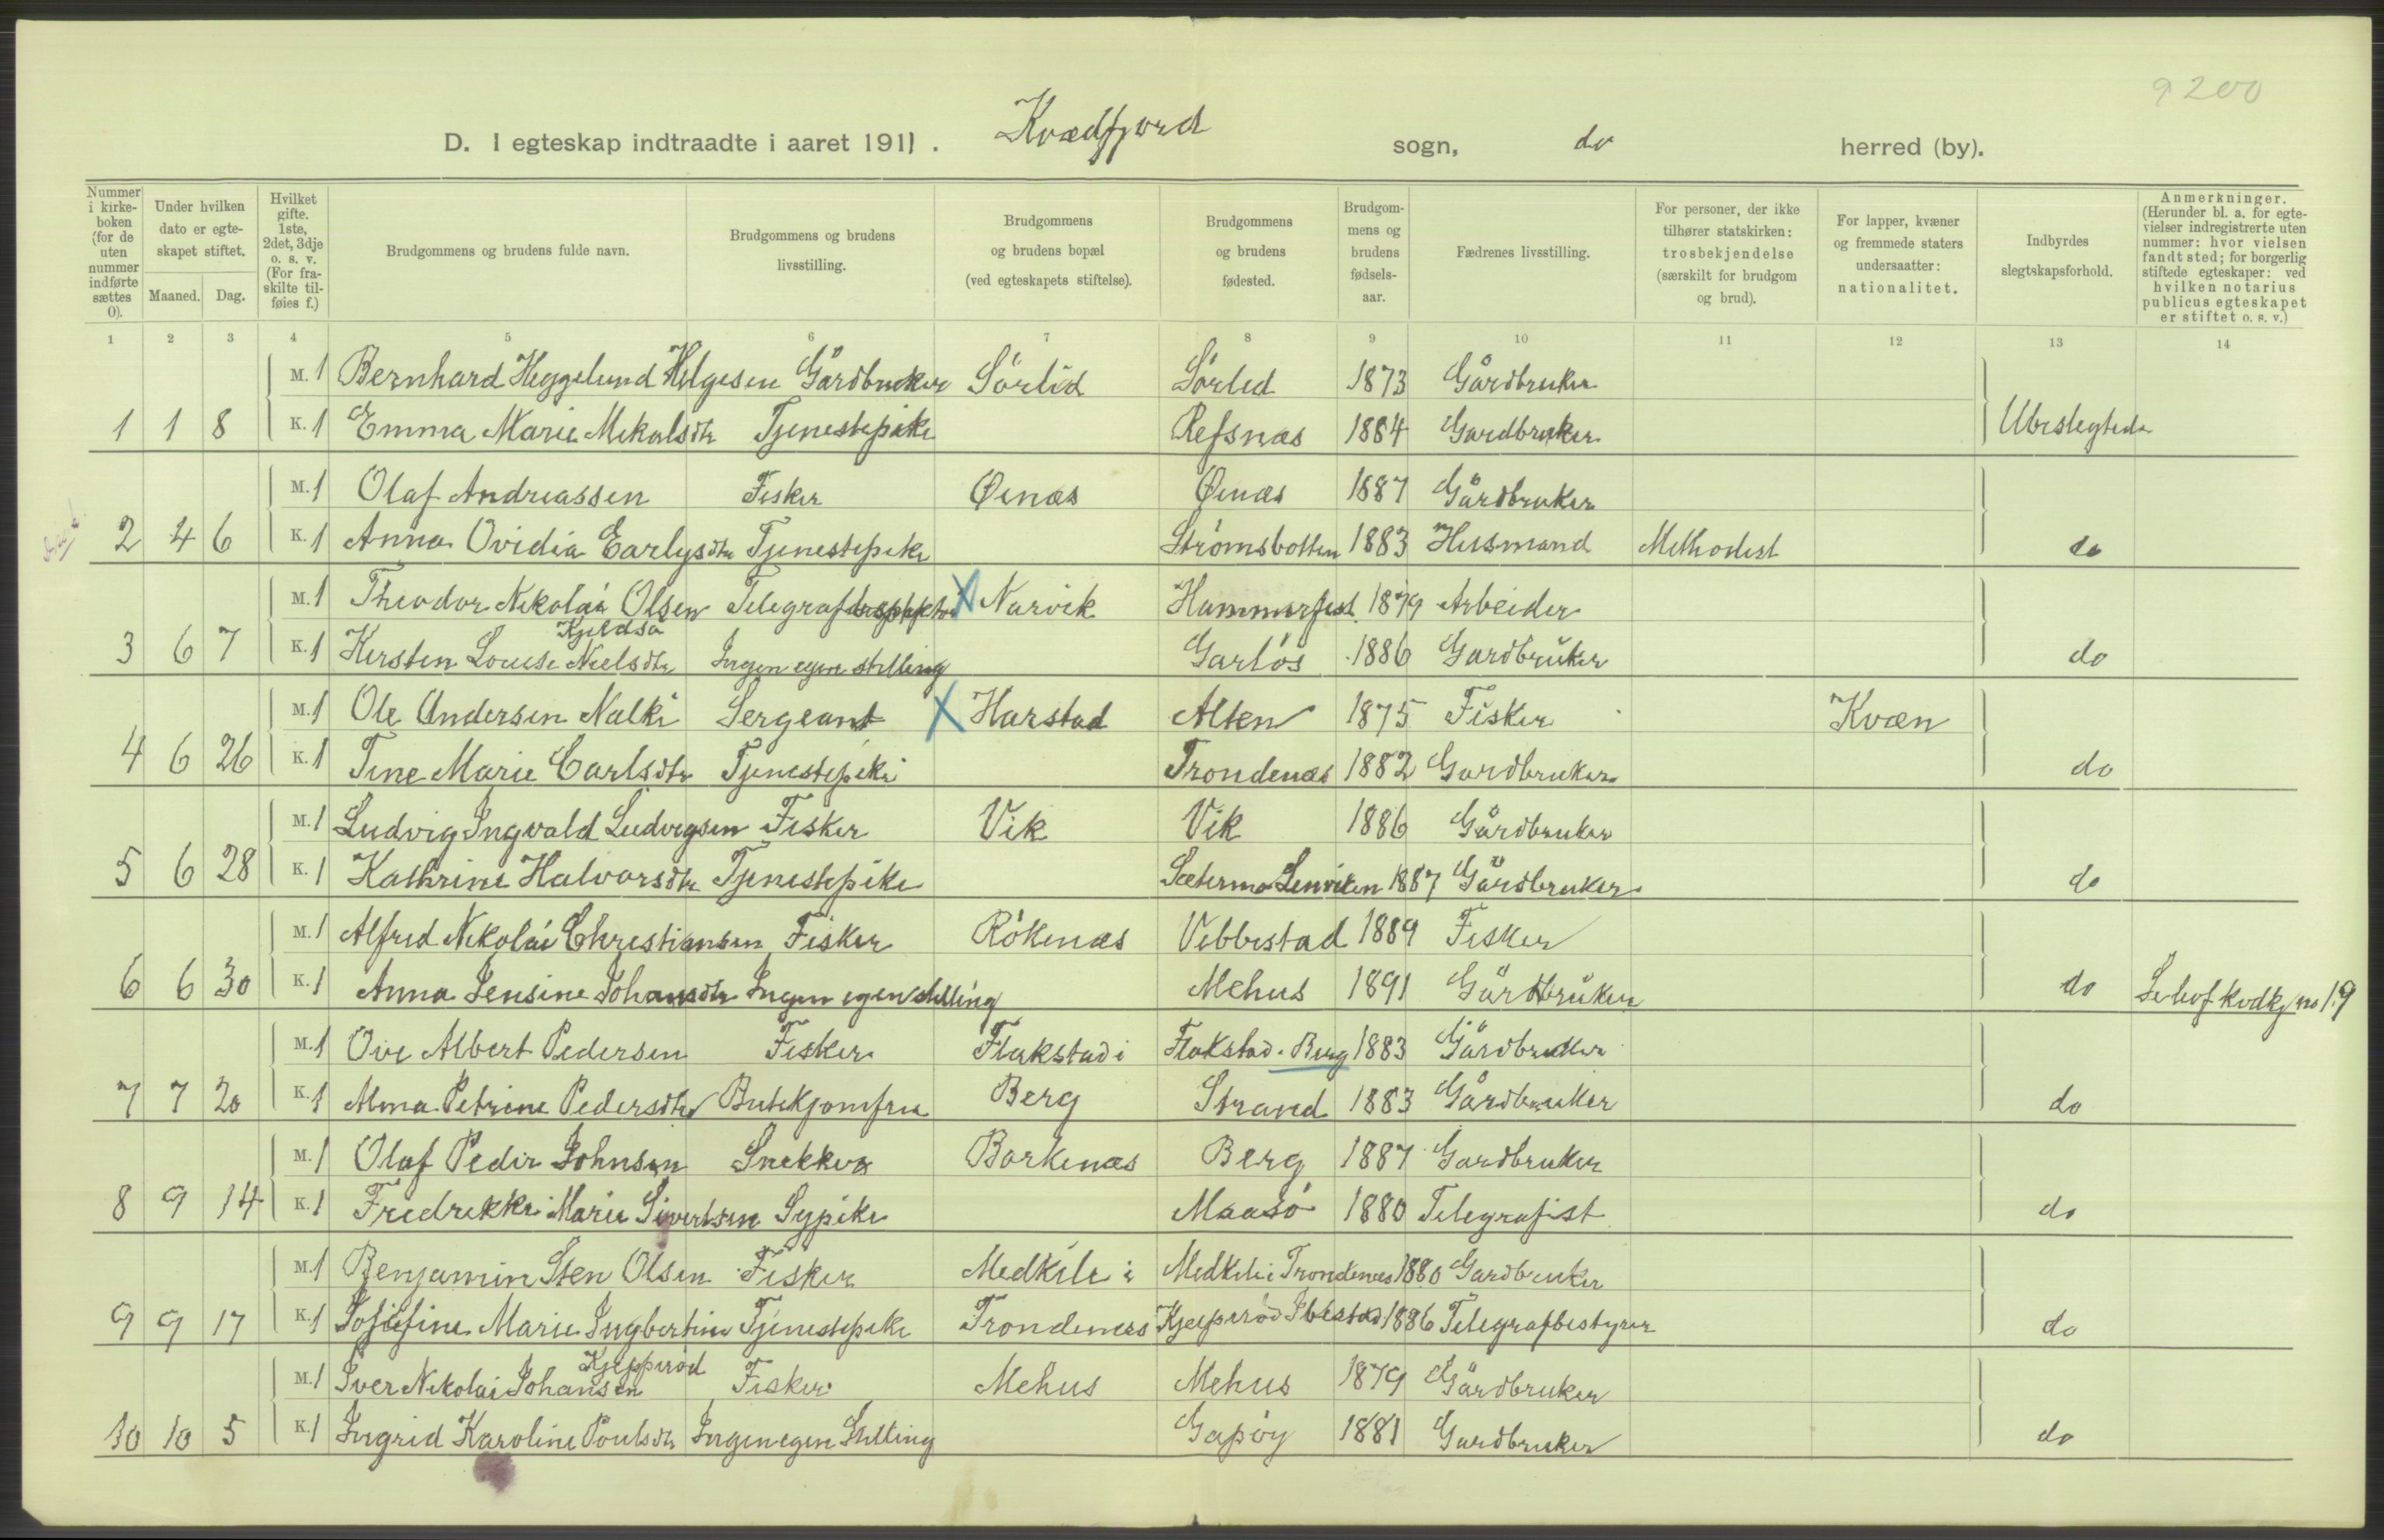 9 200
D. I egteskap indtraadte i aaret 1911. Kvædfjord sogn, do herred (by).
Nummer i kirke-boken (for de uten nummer indførte sættes 0).
Under hvilken dato er egte-skapet stiftet.
Maaned. Dag.
Hvilket gifte. 1ste, 2det, 3dje o. s. v. (For fra-skilte til-føies f.)
Brudgommens og brudens fulde navn.
Brudgommens og brudens livsstilling.
Brudgommens og brudens bopæl (ved egteskapets stiftelse).
Brudgommens og brudens fødested.
Brudgom-mens og brudens fødsels-aar.
Fædrenes livsstilling.
For personer, der ikke tilhører statskirken: trosbekjendelse (særskilt for brudgom og brud).
For lapper, kvæner og fremmede staters undersaatter: nationalitet.
Indbyrdes slegtskapsforhold.
Anmerkninger. (Herunder bl. a. for egte-vielser indregistrerte uten nummer: hvor vielsen fandt sted; for borgerlig stiftede egteskaper: ved hvilken notarius publicus egteskapet er stiftet o. s. v.)
1 2 3 4 5 6 7 8 9 10 11 12 13 14
M. 1 Bernhard Heggelund Helgesen Gårdbruker Sörlid Sörlid 1873 Gårdbruker
1 1 8 K. 1 Emma Marie Mikalsdtr Tjenestepike Refsnæs 1884 Gardbruker Ubeslegtede
M. 1 Olaf Andreassen Fisker Øinæs Øinæs 1887 Gårdbruker
2 4 6 K. 1 Anna Ovidia Earlysdtr Tjenestepike Strømsbotten 1883 Husmand Methodist do
M. 1 Theodor Nikolai Olsen Telegrafinspektør X Narvik Hammerfest 1879 Arbeider
Kjeldså
3 6 7 K. 1 Kirsten Louise Nielsdtr Ingen egen stilling Garlös 1886 Gardbruker do
M. 1 Ole Andersen Nalki Sergeant X Harstad Alten 1875 Fisker Kvæn
4 6 26 K. 1 Tine Marie Carlsdtr Tjenestepike Trondenæs 1882 Gardbruker do
M. 1 Ludvig Ingvald Ludvigsen Fisker Vik Vik 1886 Gårdbruker
5 6 28 K. 1 Kathrine Halvorsdtr Tjenestepike Lenviken 1887 Gårdbruker do
M. 1 Alfred Nikolai Christiansen Fisker Rökenæs Vebbestad 1889 Fisker
6 6 30 K. 1 Anna Jensine Johansdtr Ingen egen stilling Mehus 1891 Gårdbruker do no 19
M. 1 Ove Albert Pedersen Fisker Flakstad i Flakstad i Berg 1883 Gårdbruker
7 7 20 K. 1 Alma Petrine Pedersdtr Butikjomfru Berg Strand 1883 Gårdbruker do
M. 1 Olaf Peder Johnsen Snekker Borkenæs Berg 1887 Gardbruker
8 9 14 K. 1 Fredrikke Marie Sivertsen Sypike Maasö 1880 Telegrafist do
M. 1 Benjamin Sten Olsen Fisker Medkile i Medkile i Trondenes 1880 Gardbruker
9 9 17 K. 1 Josefine Marie Ingbertine Tjenestepike Trondenæs Kjeperöd Ibestad 1886 Telegrafbestyrer do
Kjepperöd
M. 1 Iver Nikolai Johansen Fisker Mehus Mehus 1879 Gårdbruker
10 10 5 K. 1 Ingrid Karoline Poulsdtr Ingen egen Stilling Gapöy 1881 Gardbruker do